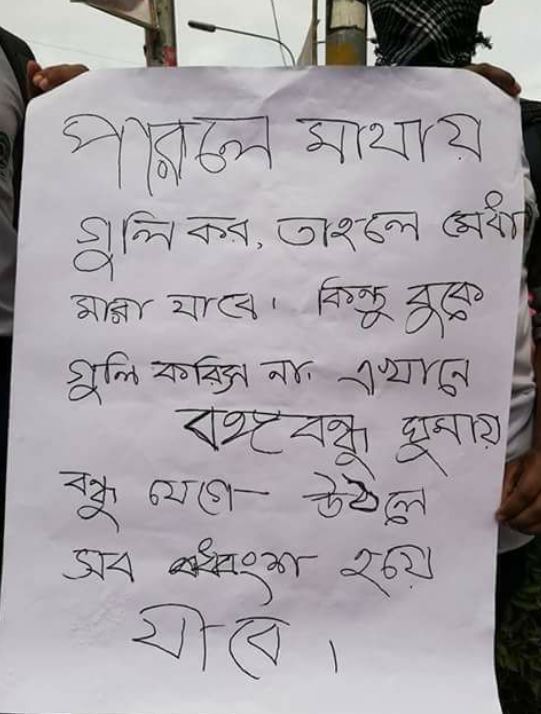 পারলে মাথায়
গুলি কর, তাহলে মেধা
মারা যাবে। কিন্তু বুকে
গুলি করিস না। এখানে
বঙ্গবন্ধু ঘুমায়
বন্ধু যেগে উঠলে
সব ধ্বংশ হয়ে
যাবে।